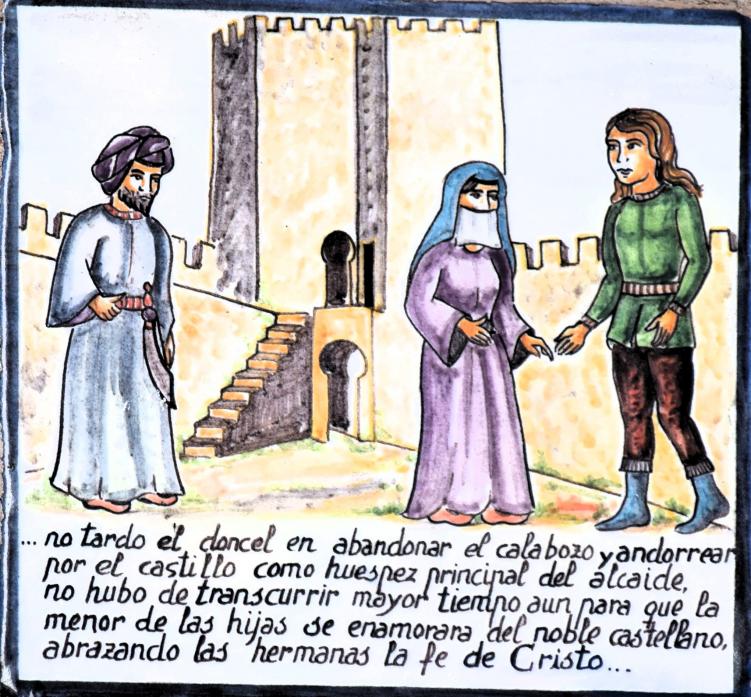 ... no tardo el doncel en abandonar el calabozo y andorrear
por el castillo como huespez principal del alcaide,
no hubo de transcurrir mayor tiempo aun para que la
menor de las hijas se enamorara del noble castellano,
abrazando las hermanas la fe de Cristo...